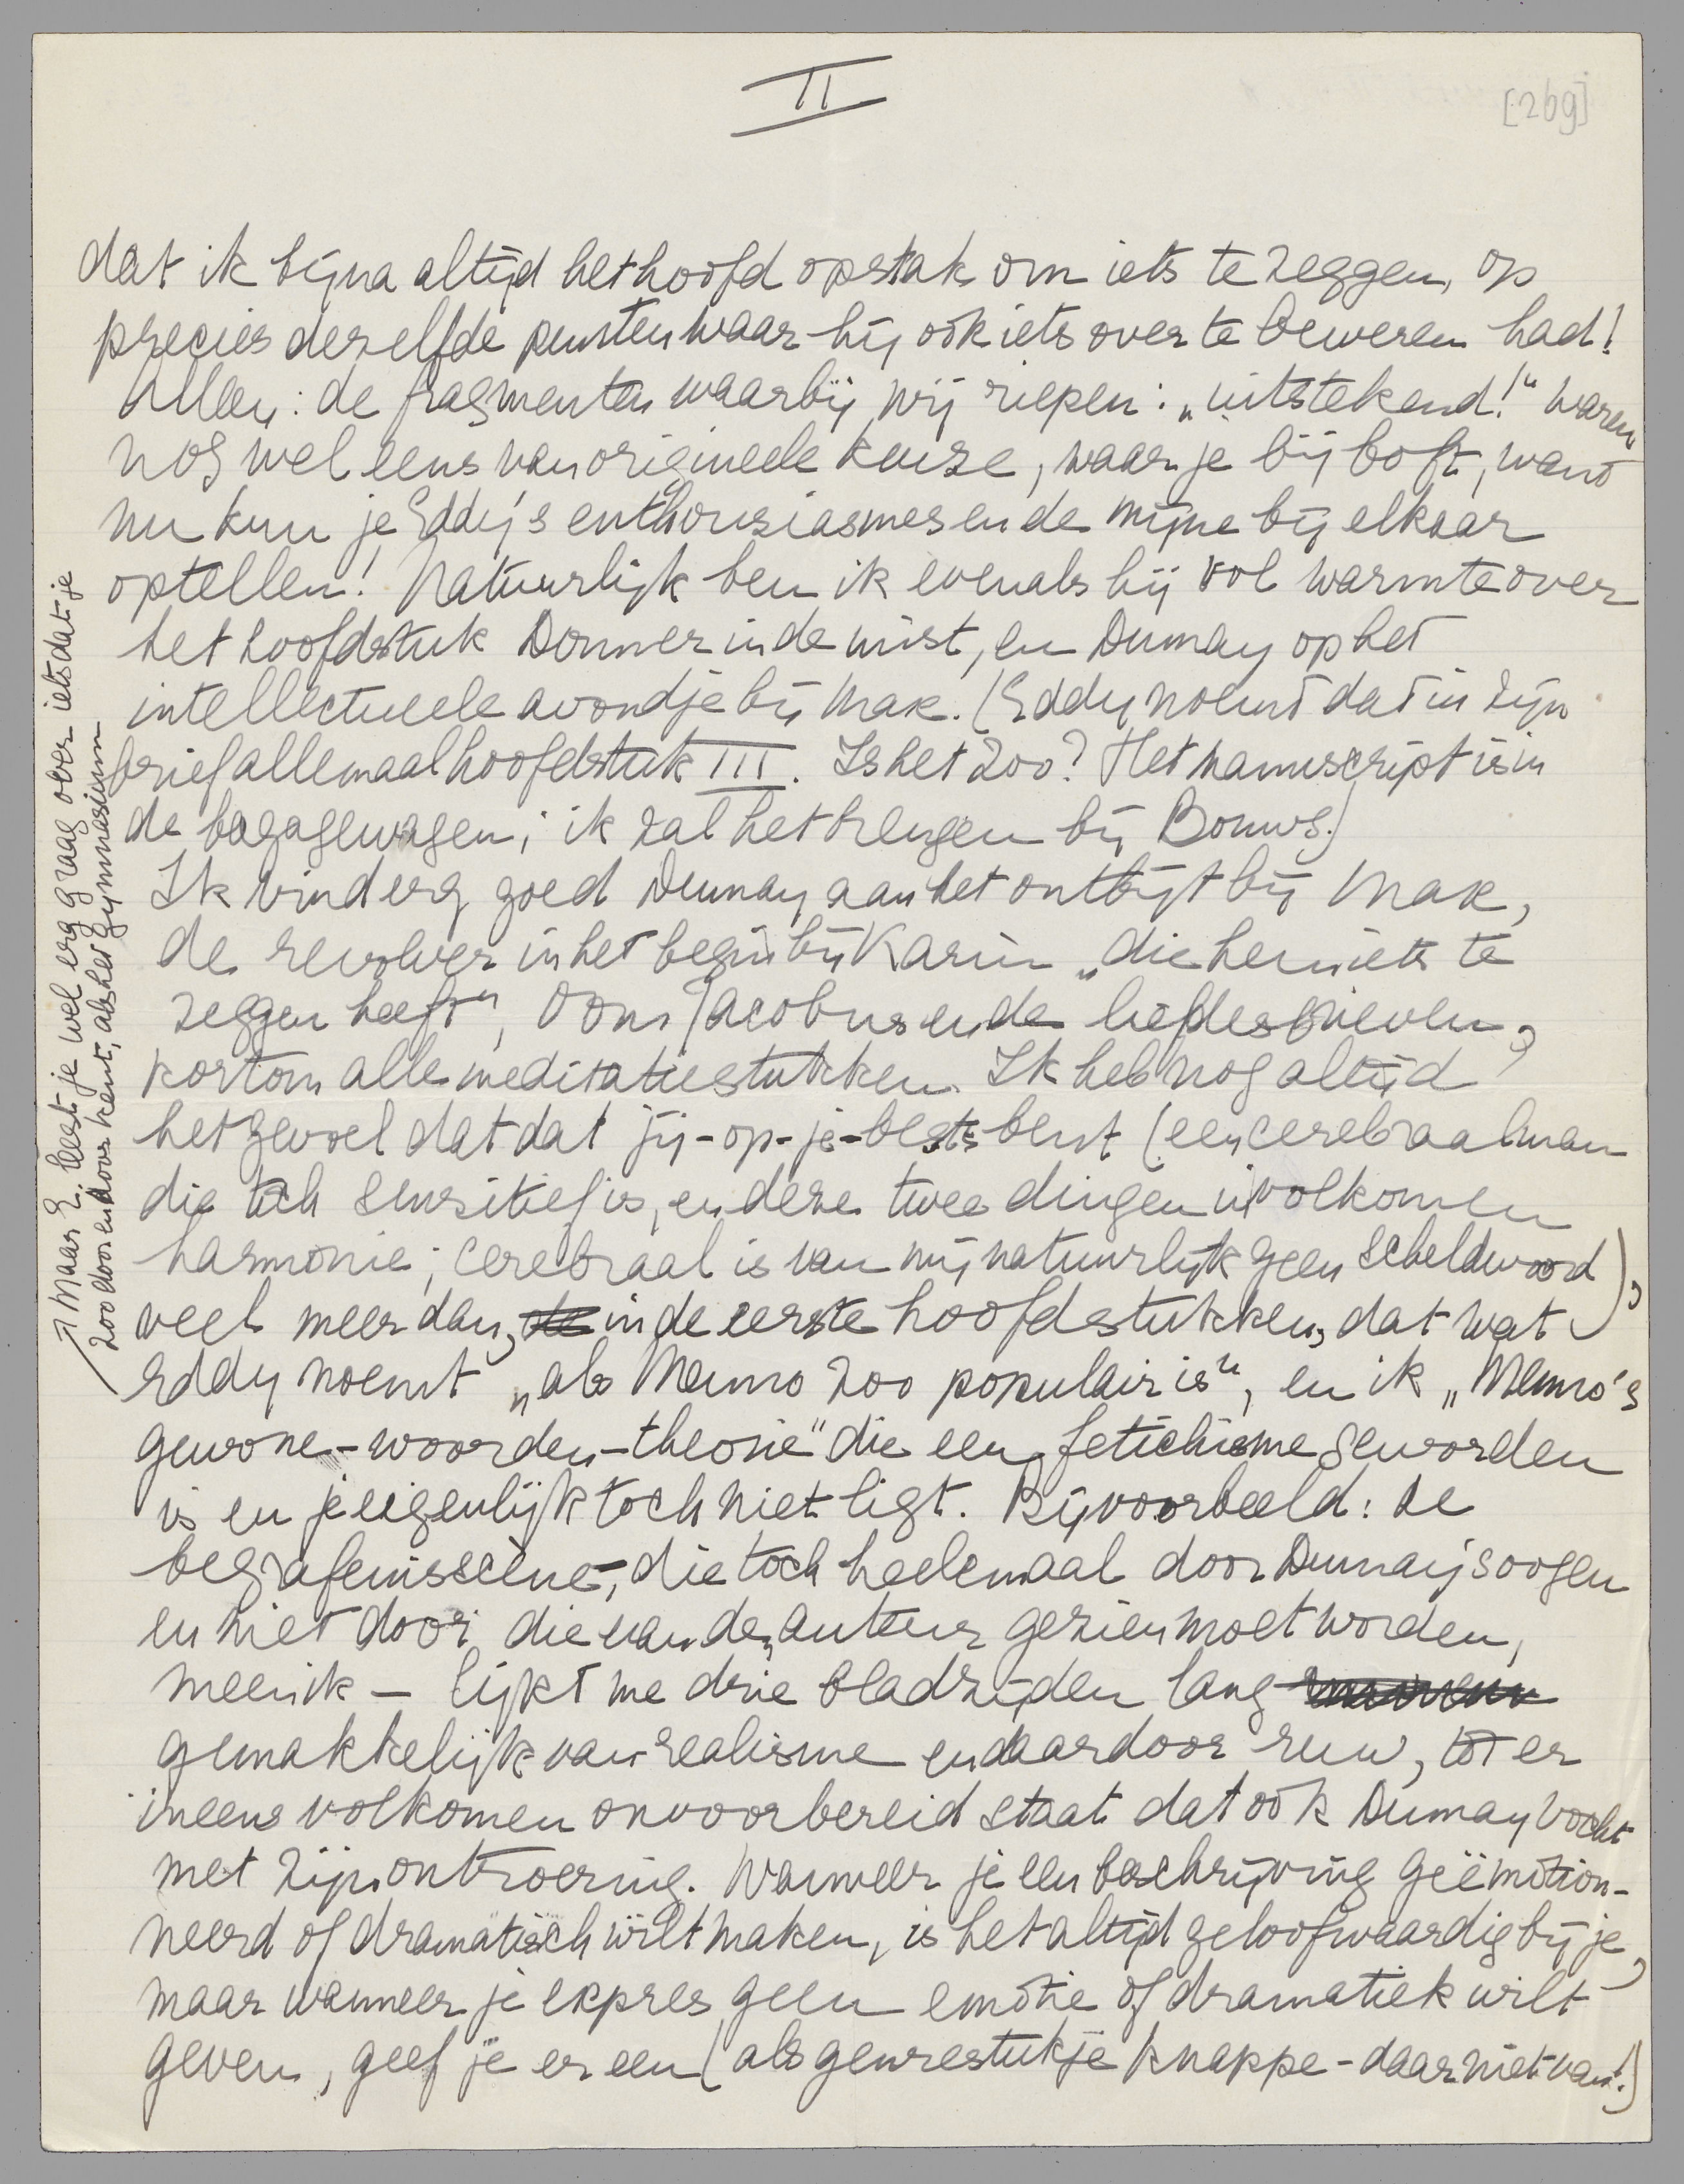 II
[269]
dat ik bijna altijd het hoofd opstak om iets te zeggen, op
precies dezelfde punten waar hij ook iets over te beweren had!
Alleen: de fragmenten waarbij wij riepen: „uitstekend!" waren
nog wel eens van origineele keuze, waar je bij boft, want
nu kun je Eddy's enthousiasmes en de mijne bij elkaar
optellen! Natuurlijk ben ik evenals hij vol warmte over
het hoofdstuk Donner in de mist, en Dumay op het
intellectueele avondje bij Mak. (Eddy noemt dat in zijn
brief allemaal hoofdstuk III. Is het zoo? Het manuscript is in
de bagagewagen; ik zal het brengen bij Bouws.)
Ik vind erg goed Dumay aan het ontbijt bij Mak,
de revolver in het begin bij Karin „die hem iets te
zeggen heeft", Oom Jacobus en de liefdesbrieven,
kortom alle meditatiestukken. Ik heb nog altijd
het gevoel dat dat jij-op-je-best bent (een cerebraal man
die toch sensitief is, en deze twee dingen in volkomen
harmonie; cerebraal is van mij natuurlijk geen scheldwoord),
veel meer dan, in de eerste hoofdstukken, dat wat
Eddy noemt „als Menno zoo populair is", en ik „Menno's
gewone-woorden-theorie" die een fetichisme geworden
is en je eigenlijk toch niet ligt. Bijvoorbeeld: de
begrafenisscène, die toch heelemaal door Dumay's oogen
en niet door die van de auteur gezien moet worden,
meen ik – lijkt me drie bladzijden lang
gemakkelijk van realisme en daardoor ruw, tot er
ineens volkomen onvoorbereid staat dat ook Dumay vocht
met zijn ontroering. Wanneer je een beschrijving geëmotion-
neerd of dramatisch wilt maken, is het altijd geloofwaardig bij je,
maar wanneer je expres geen emotie of dramatiek wilt
geven, geef je er een (als genrestukje knappe - daar niet van!)
Maar E. leest je wel erg graag over iets dat je
zoo door en door kent, als het gymnasium